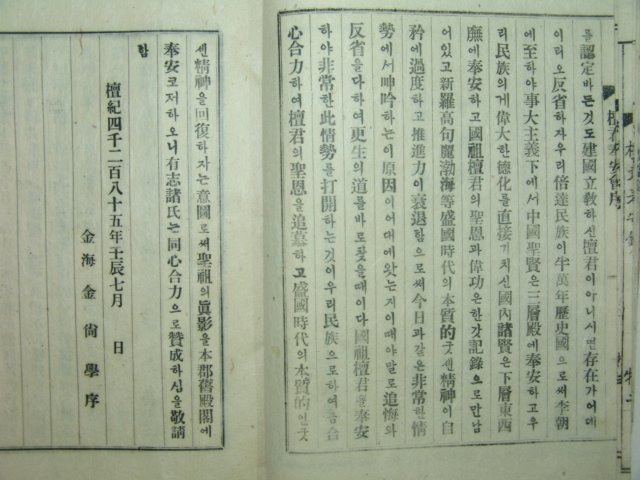 를認定바든것도建國立敎하신檀君이아니시면存在가어대
이러오反省하자우리倍達民族이半萬年歷史國으로써李朝
에至하야事大主義下에서中國聖賢은三層殿에奉安하고우
리民族의게偉大한德化를直接기치신國內諸賢은下層東西
廡에奉安하고國祖檀君의聖恩과偉功은한갓記錄으로만남
어있고新羅高句麗渤海等盛國時代의本質的굿센精神이自
矜에過度하고推進力이衰退함으로써今日과같은非常한情
勢에서呻吟하는이原因이어대에앗는지이때야말로追悔와
反省을다하여更生의道를바로찾을때이다國祖檀君을奉安
하야非常한此情勢를打開하는것이우리民族으로하여금合
心合力하여檀君의聖恩을追慕하고盛國時代의本質的인굿
센精神을回復하자는意圖로써聖祖의眞影을本郡舊殿閣에
奉安코저하오니有志諸氏는同心合力으로贊成하심을敬請
함
檀紀四千二百八十五年壬辰七月 日
金海金尙學序
檀君奉安會序